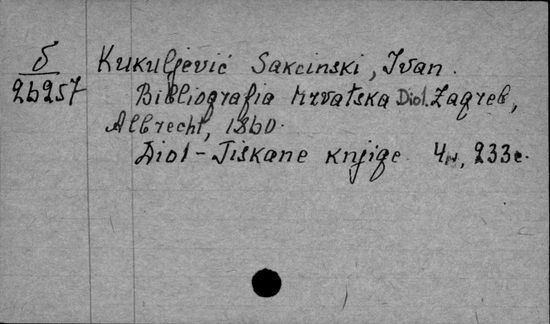 б Kukuljević Sakcinski, Ivan.
26257 Bibliografia Hrvatska Diol. Zagreb,
Albrecht, 1860.
Diol - Tiskane knjige. 4н, 233с.